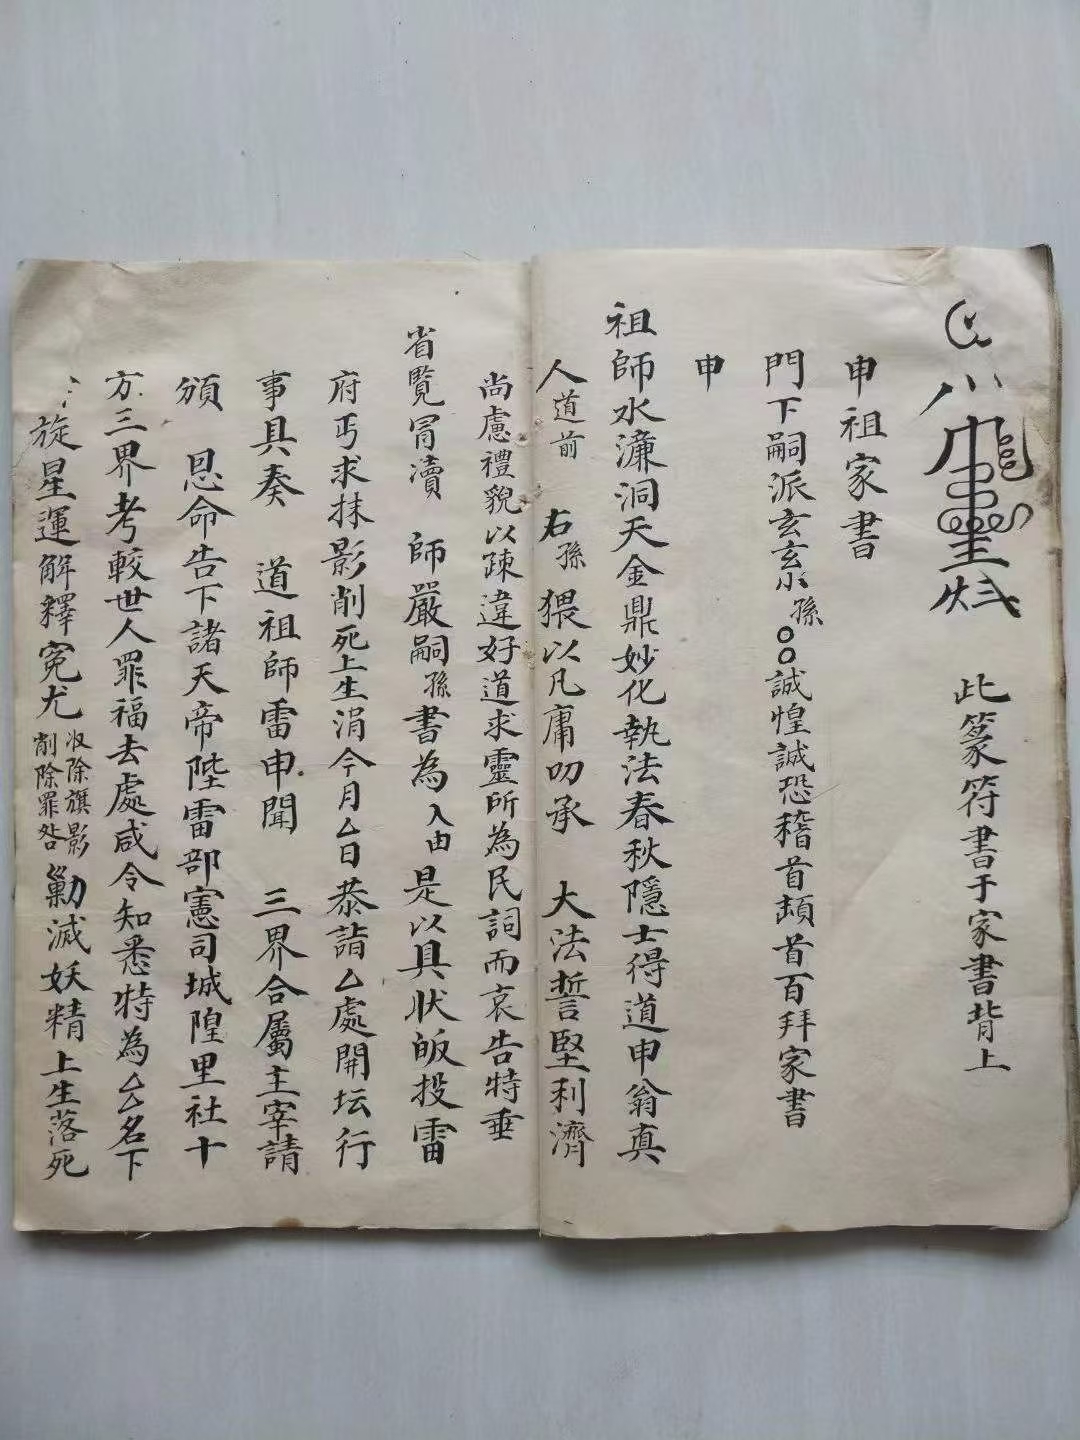 此篆符書于家書背上
申祖家書
門下嗣派玄玄小孫〇〇誠惶誠恐稽首頓首百拜家書
申
祖師水濂洞天金鼎妙化執法春秋隱士得道申翁真
人道前 右孫猥以凡庸叨承 大法誓堅利濟
尚慮禮貌以疎違好道求靈所為民詞而哀告特垂
省覧冐瀆 師嚴嗣孫書為入由是以具狀皈投雷
府丐求抹影削死上生涓今月厶日恭詣厶處開坛行
事具奏 道祖師雷申聞 三界合屬主宰請
頒 恩命告下諸天帝陛雷部憲司城隍里社十
方三界考較世人罪福去處咸令知悉特為厶名下
旋星運解釋冤尤收除旗影削除罪咎勦滅妖精上生落死